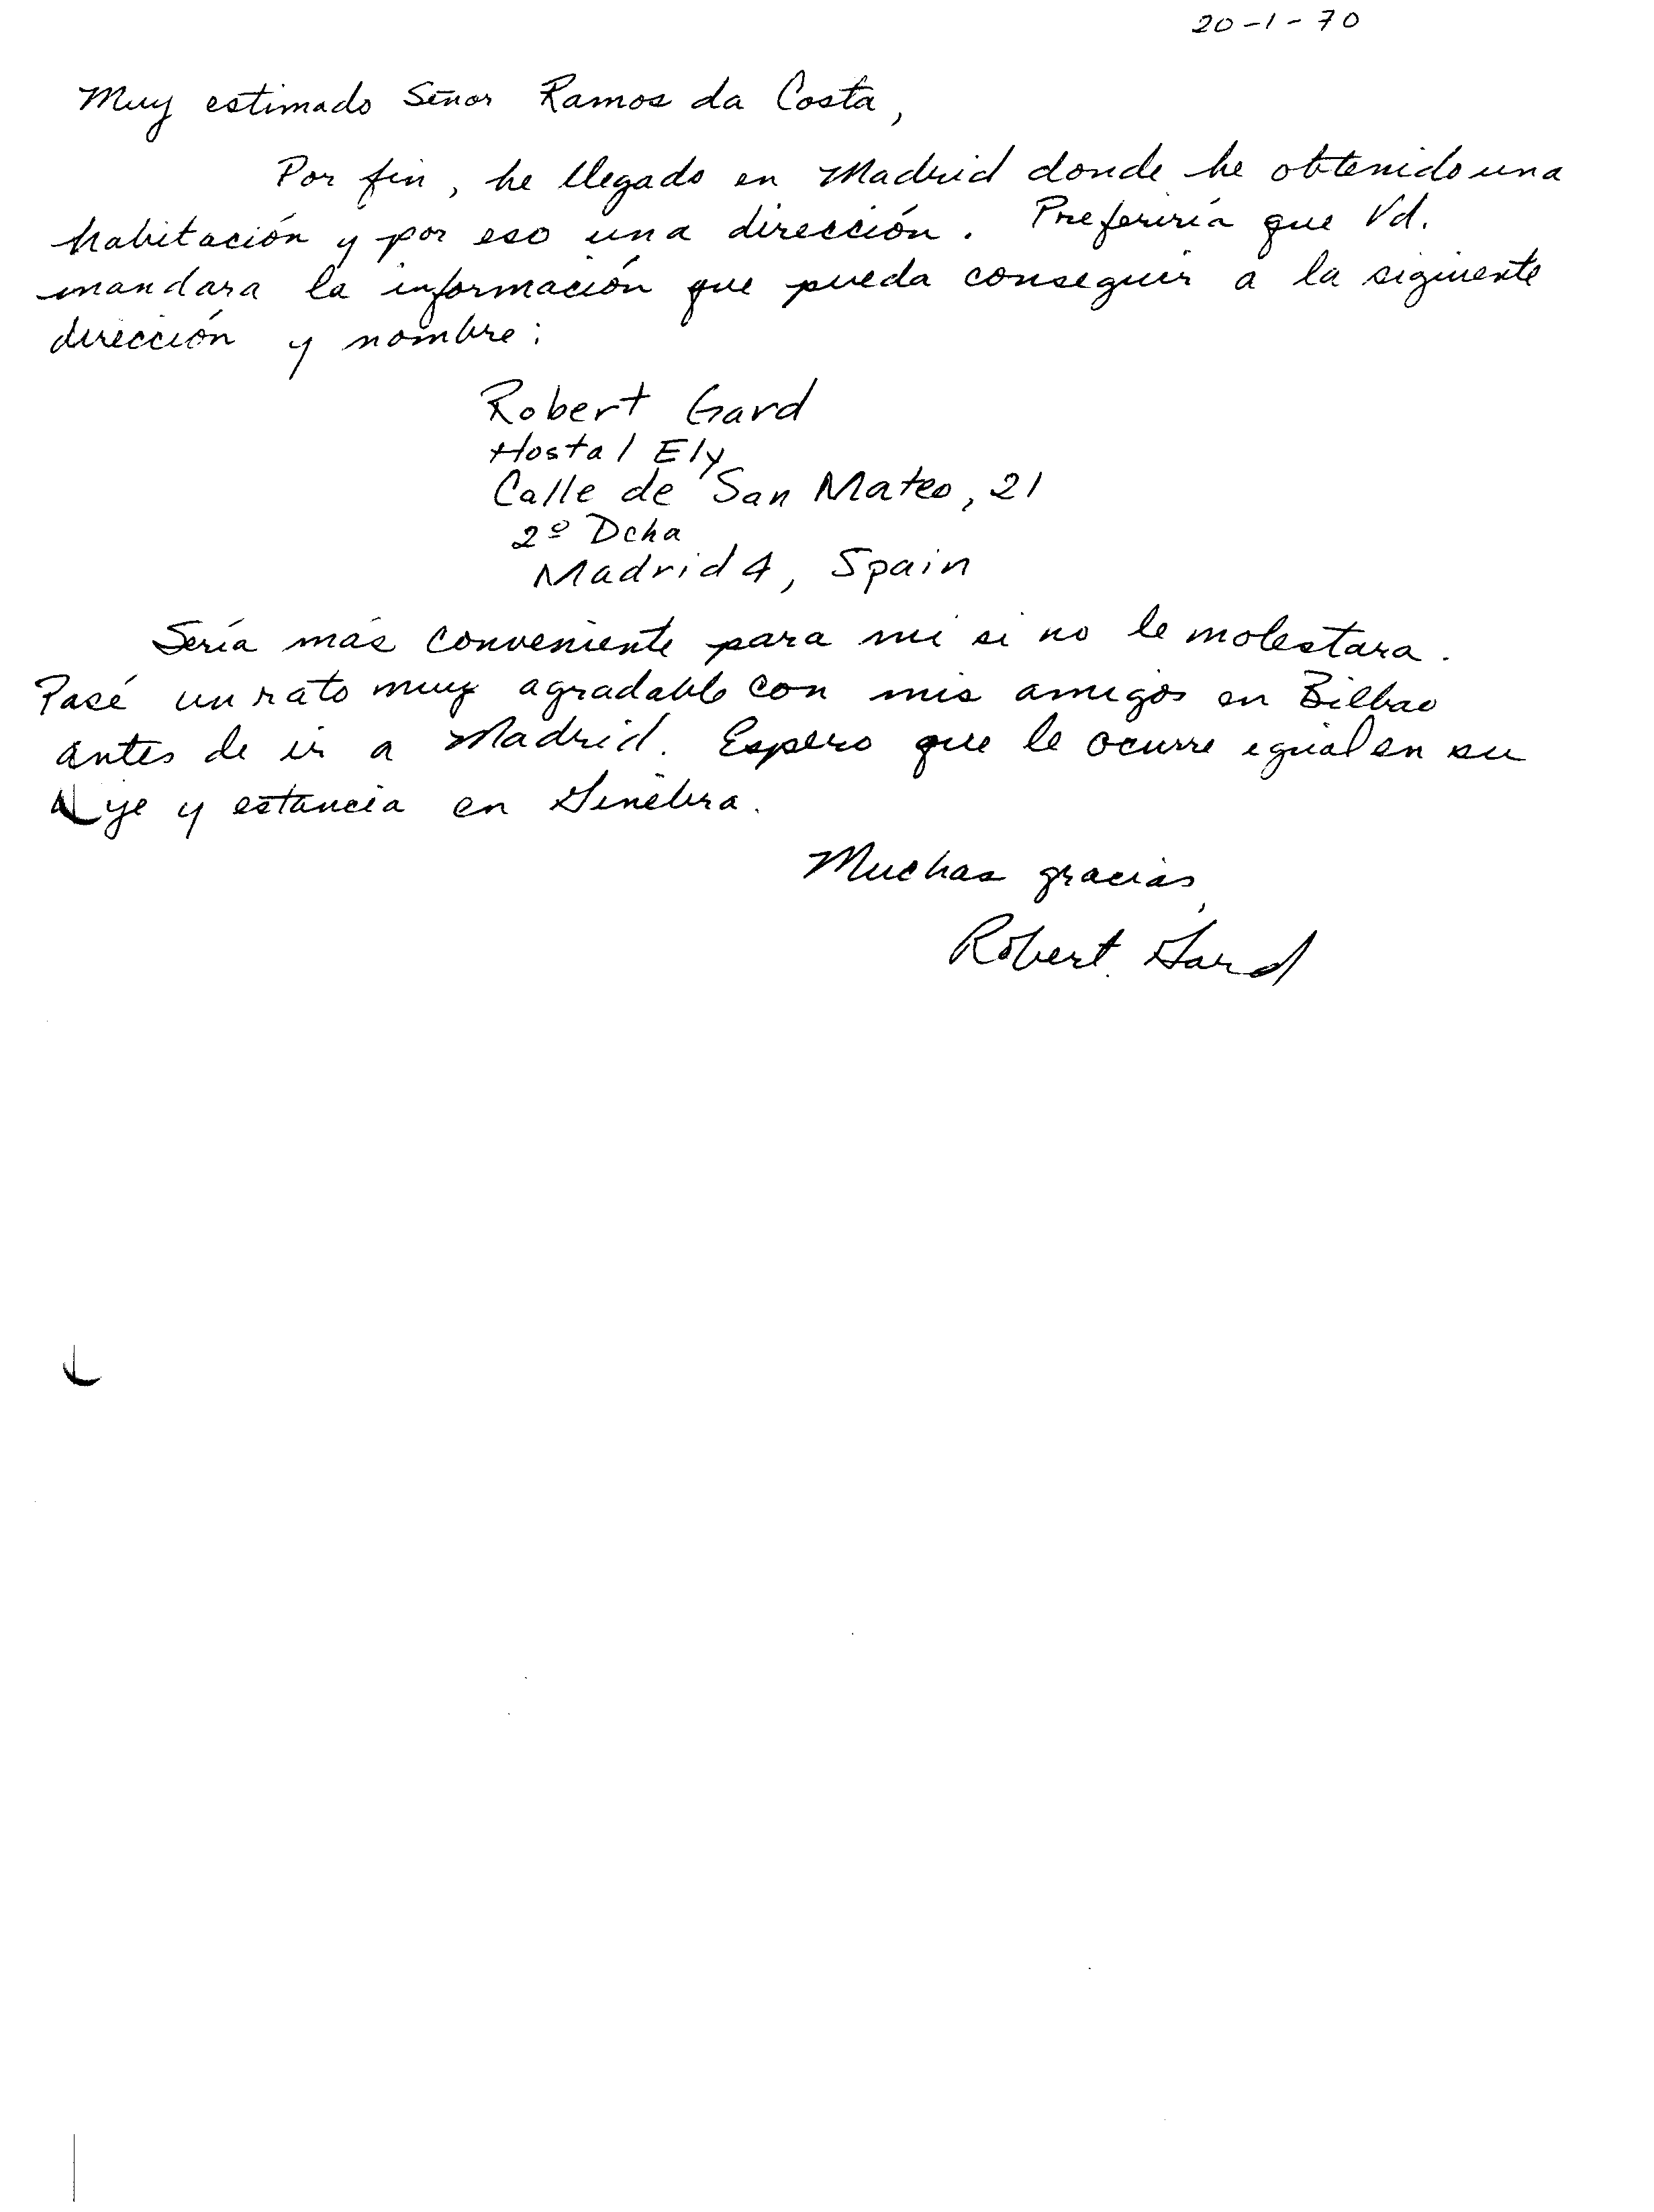 20-1-70
Muy estimado Señor Ramos da Costa,
Por fin, he llegado en Madrid donde he obtenido una
habitación y por eso una dirección. Preferiría que Vd.
mandara la información que pueda conseguir a la siguiente
dirección y nombre:
Robert Gard
Hostal Ely
Calle de San Mateo, 21
2º Dcha
Madrid 4, Spain
Sería más conveniente para mi si no le molestara.
Pasé un rato muy agradable con mis amigos en Bilbao
antes de ir a Madrid. Espero que le ocurre egual en su
y estancia en Ginebra.
Muchas gracias,
Robert Gard